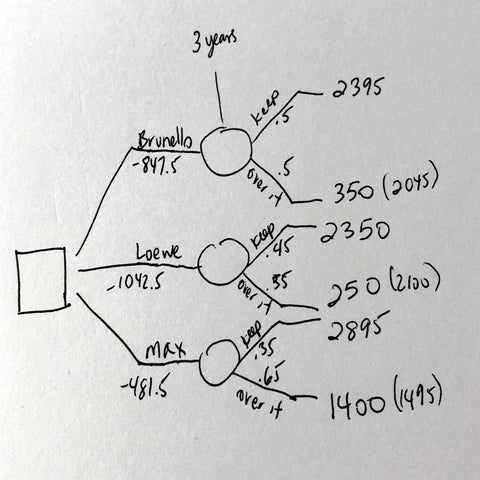 3 years
Brunello
-847.5
keep
.5
2395
over it
.5
350 (2045)
Loewe
-1042.5
keep
.45
2350
over it
.55
250 (2100)
max
-481.5
keep
.35
2895
over it
.65
1400 (1495)